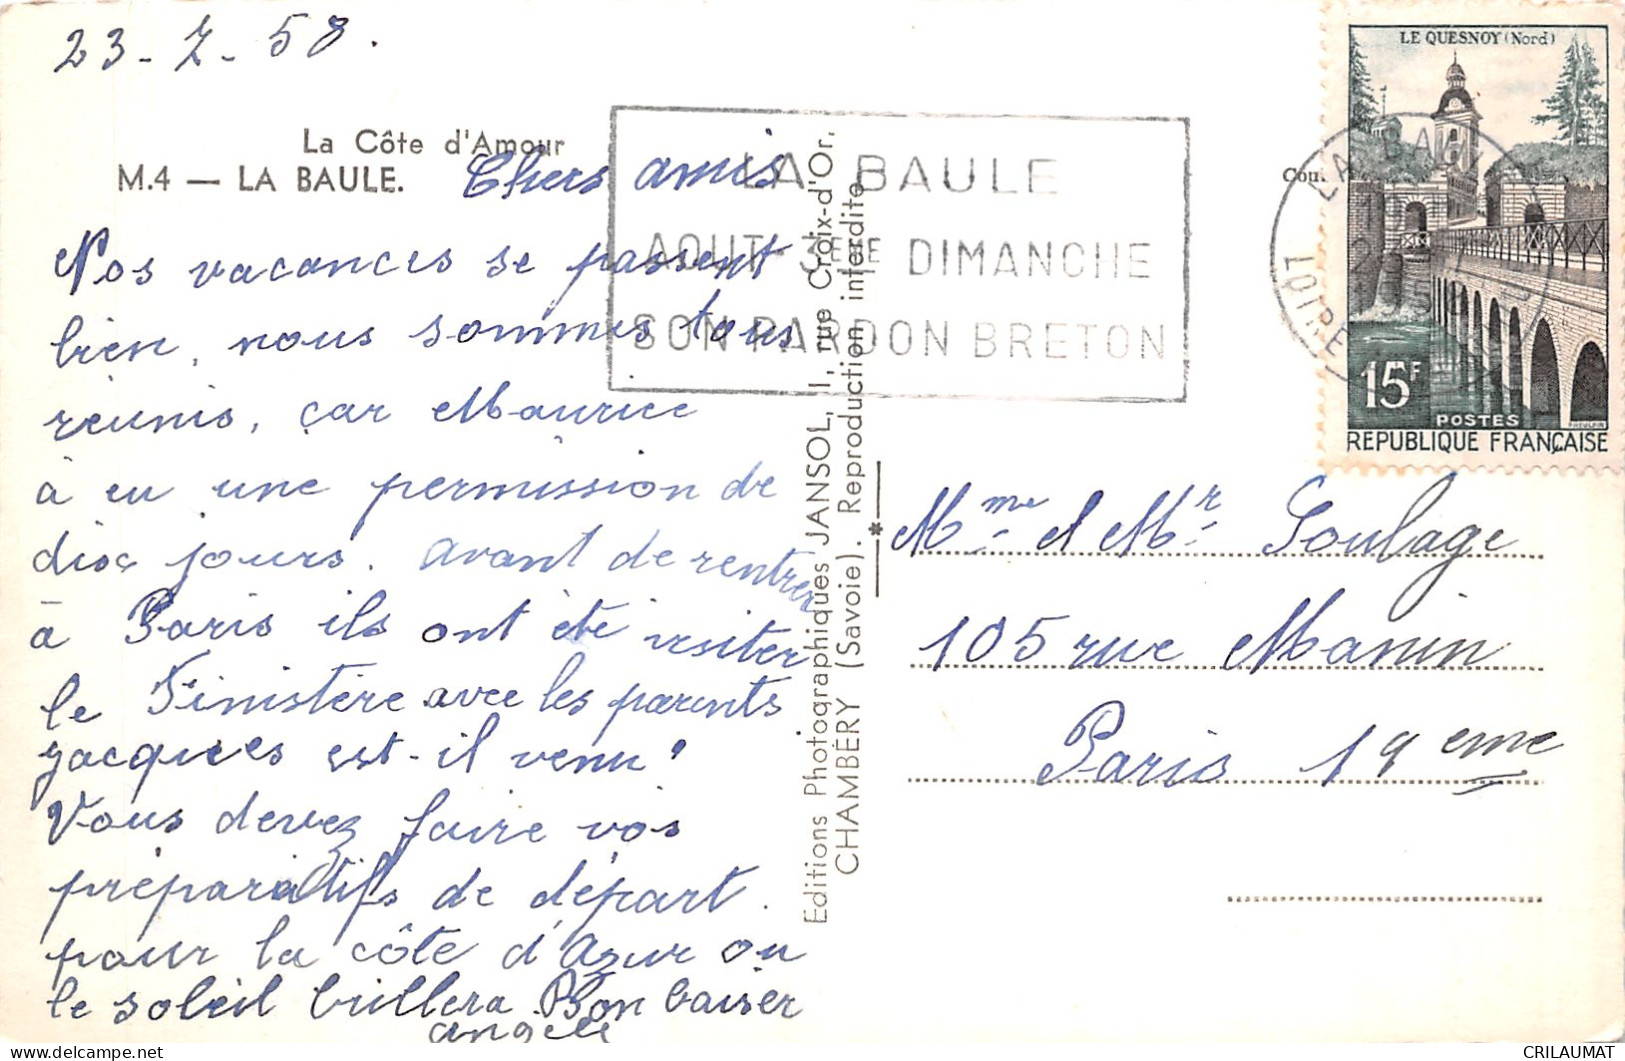 23-7-58.
La Côte d'Amour
M.4 — LA BAULE.
Chers amis
Nos vacances se passent
bien, nous sommes tous
réunis, car Maurice
à eu une permission de
dix jours. avant de rentrer
à Paris ils ont été visiter
le Finistère avec les parents
Jacques est-il venu?
Vous devez faire vos
préparatifs de départ.
pour la côte d'Azur ou
le soleil brillera Bon baiser
angele
LA BAULE
AOUT-3EME DIMANCHE
SON PARDON BRETON
Editions Photographiques JANSOL, 1, rue Croix-d'Or,
CHAMBÉRY (Savoie). Reproduction interdite
LE QUESNOY (Nord)
15F
POSTES
REPUBLIQUE FRANÇAISE
LA BAULE
LOIRE
Mme et Mr Soulage
105 rue Manin
Paris 19eme
CRILAUMAT
delcampe.net